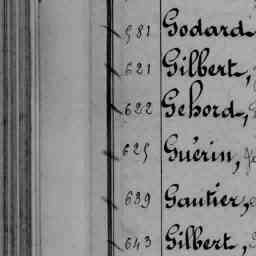 581 Godard
621 Gilbert,
622 Gehord,
625 Guérin,
639 Gautier,
643 Gilbert,